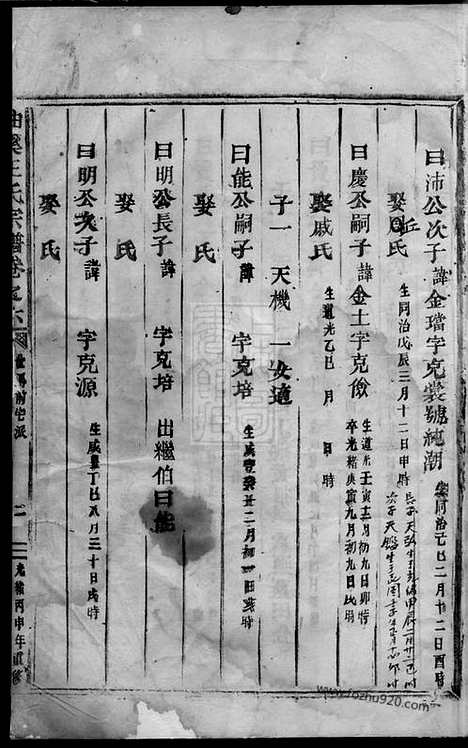 曰沛公次子諱金璔字克裳號純潮 生同治己巳二月十二日酉時
娶丘氏 生同治戊辰三月十二日申時
曰慶公嗣子諱金土字克儉 生道光壬寅十二月初九日卯時
卒光緒庚寅九月初九日巳時
娶戚氏 生道光乙巳 月 日 時
子一 天機 一女適
曰能公嗣子諱 字克培 生咸豐癸丑二月初一日亥時
娶氏
曰明公長子諱 字克培 出繼伯曰能
娶氏
曰明公次子諱 字克源 生咸豐丁巳八月三十日 時
娶氏
王氏宗譜卷之六 前宅派
光緒丙申年重修
www.fozhu920.com